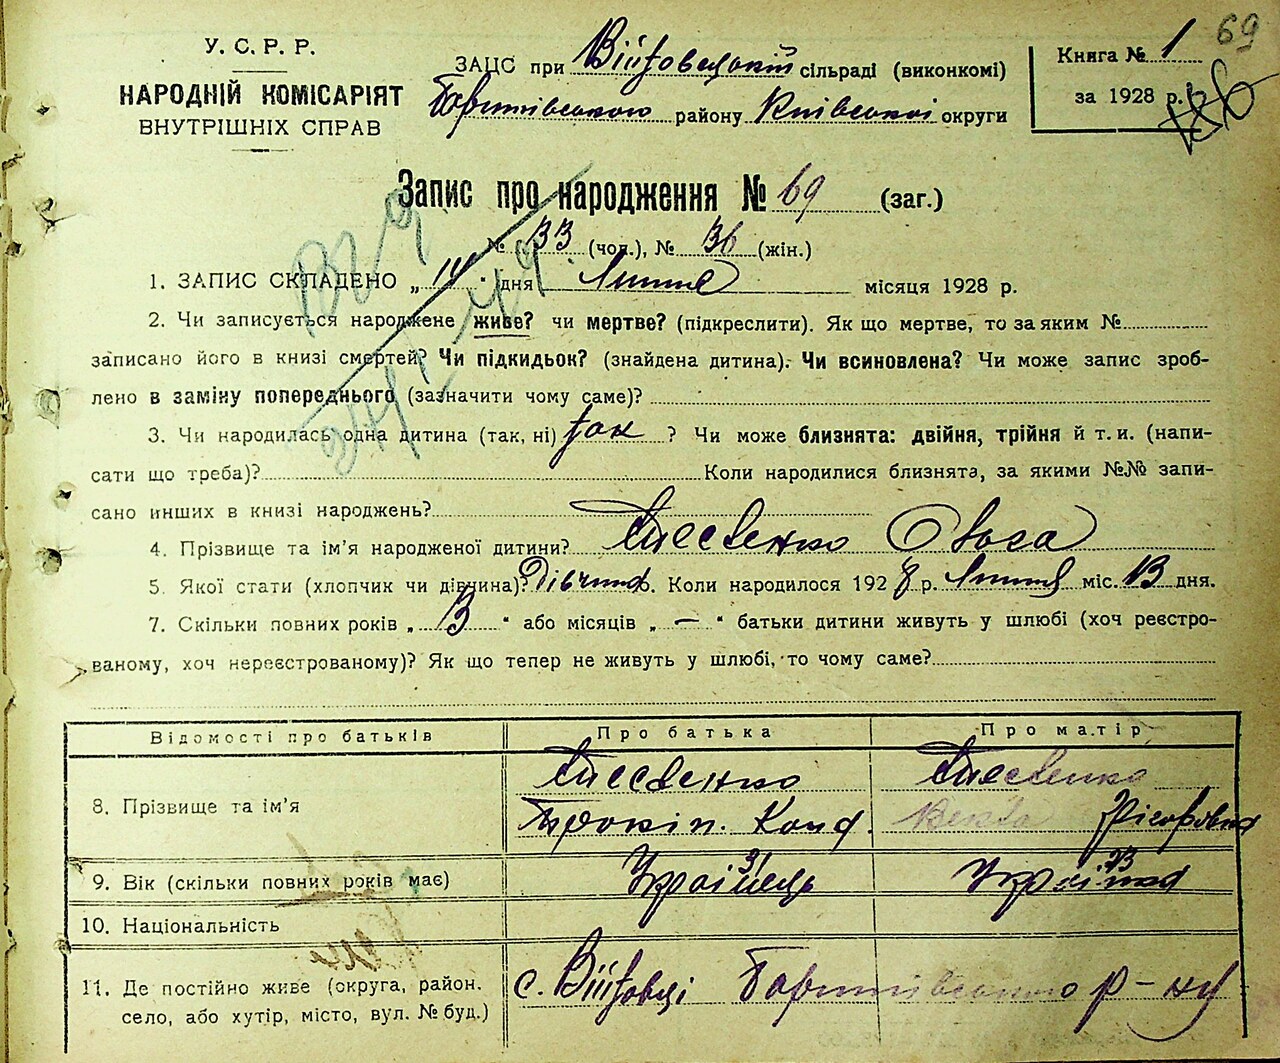 69
У. С. Р. Р.
НАРОДНІЙ КОМІСАРІЯТ
ВНУТРІШНІХ СПРАВ
ЗАЦС при Війтовецкій сільраді (виконкомі)
Баришівського району Київської округи
Книга № 1
за 1928 р.
Запис про народження № 69 (заг.)
№ 33 (чол.), № 36 (жін.)
1. ЗАПИС СКЛАДЕНО „ 14 “ дня Липня місяця 1928 р.
2. Чи записується народжене живе? чи мертве? (підкреслити). Як що мертве, то за яким №
записано його в книзі смертей? Чи підкидьок? (знайдена дитина). Чи всиновлена? Чи може запис зроб-
лено в заміну попереднього (зазначити чому саме)?
3. Чи народилась одна дитина (так, ні) так ? Чи може близнята: двійня, трійня й т. и. (напи-
сати що треба)? Коли народилися близнята, за якими №№ запи-
сано инших в книзі народжень?
4. Прізвище та ім'я народженої дитини?
5. Якої стати (хлопчик чи дівчина)? Дівчина. Коли народилося 1928 р. Липня міс. 13 дня.
7. Скільки повних років „ 3 “ або місяців „ — “ батьки дитини живуть у шлюбі (хоч реєстро-
ваному, хоч нереєстрованому)? Як що тепер не живуть у шлюбі, то чому саме?
Відомості про батьків Про батька Про матір
8. Прізвище та ім'я
Прокіп Григоровна
9. Вік (скільки повних років має) 31 23
Українець Українка
10. Національність
11. Де постійно живе (округа, район.
село, або хутір, місто, вул. № буд.)
с. Війтовці Баришівського р-ну